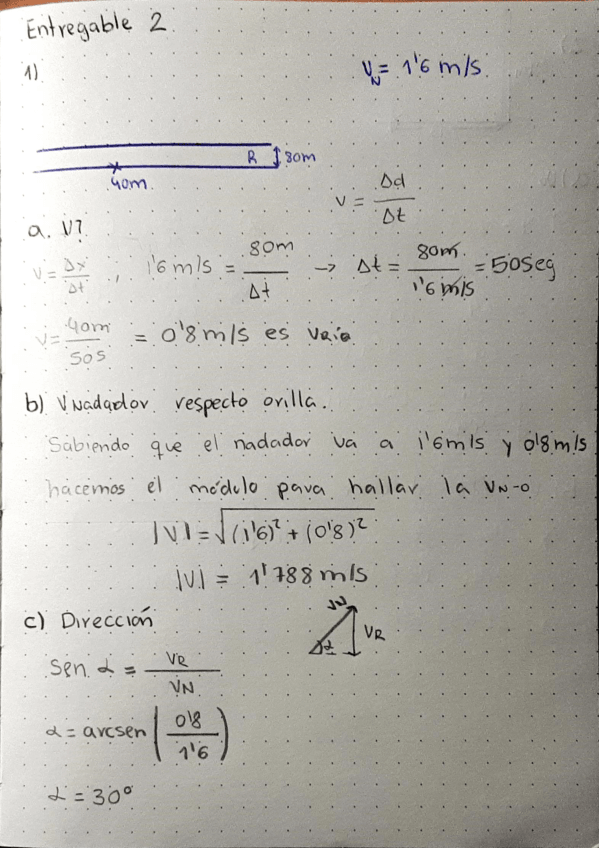 Entregable 2
1)
V_N = 1'6 m/s
R 80m
40m
v = Δd / Δt
a. V?
V = Δx / Δt , 1'6 m/s = 80m / Δt → Δt = 80m / 1'6 m/s = 50seg
V = 40m / 50s = 0'8 m/s es VRío
b) VNadador respecto orilla.
Sabiendo que el nadador va a 1'6m/s y 0'8m/s
hacemos el módulo para hallar la VN-O
|V| = √(1'6)² + (0'8)²
|V| = 1'788 m/s
c) Dirección
VN
α
VR
Sen α = VR / VN
α = arcsen (0'8 / 1'6)
α = 30°